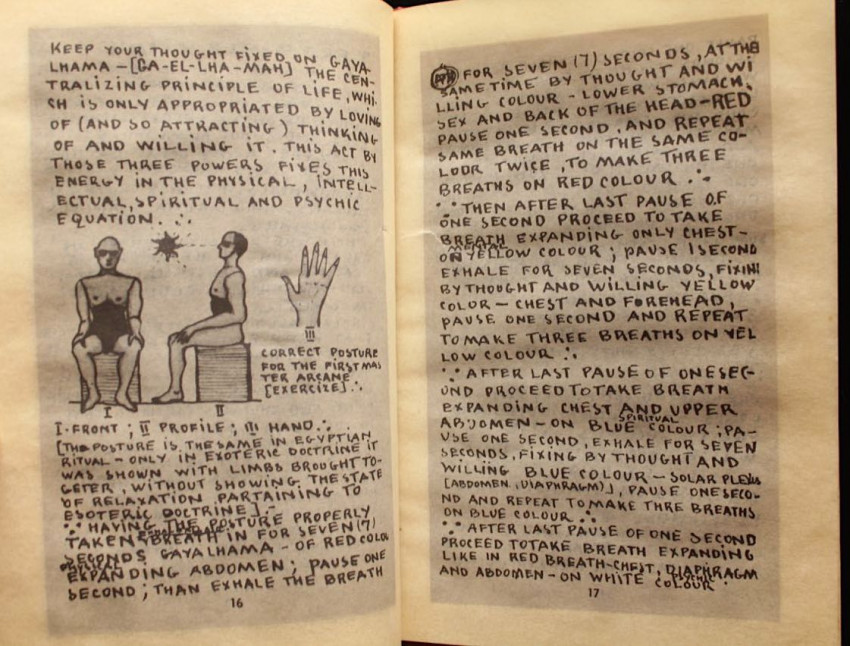 KEEP YOUR THOUGHT FIXED ON GAYA-
LHAMA – [GA-EL-LHA-MAH] THE CEN-
TRALIZING PRINCIPLE OF LIFE, WHI-
CH IS ONLY APPROPRIATED BY LOVING
OF (AND SO ATTRACTING) THINKING
OF AND WILLING IT. THIS ACT BY
THOSE THREE POWERS FIXES THIS
ENERGY IN THE PHYSICAL, INTELL-
ECTUAL, SPIRITUAL AND PSYCHIC
EQUATION. ∴
III
CORRECT POSTURE
FOR THE FIRST MAS
TER ARCANE
[EXERCIZE] ∴
I
II
I·FRONT; II PROFILE; III HAND. ∴
[THE POSTURE IS THE SAME IN EGYPTIAN
RITUAL – ONLY IN EXOTERIC DOCTRINE IT
WAS SHOWN WITH LIMBS BROUGHT TO-
GETER, WITHOUT SHOWING THE STATE
OF RELAXATION PARTAINING TO
ESOTERIC DOCTRINE].-
∴ HAVING THE POSTURE PROPERLY
TAKEN BREATH IN FOR SEVEN (7)
SECONDS GAYALHAMA – OF RED COLOUR
EXPANDING ABDOMEN; PAUSE ONE
SECOND; THAN EXHALE THE BREATH
16
FOR SEVEN (7) SECONDS, AT THE
SAME TIME BY THOUGHT AND WI
LLING COLOUR – LOWER STOMACH,
SEX AND BACK OF THE HEAD – RED
PAUSE ONE SECOND, AND REPEAT
SAME BREATH ON THE SAME CO-
LOUR TWICE, TO MAKE THREE
BREATHS ON RED COLOUR. ∴
∴ THEN AFTER LAST PAUSE OF
ONE SECOND PROCEED TO TAKE
BREATH EXPANDING ONLY CHEST-
MENTAL
ON YELLOW COLOUR; PAUSE 1 SECOND
EXHALE FOR SEVEN SECONDS, FIXING
BY THOUGHT AND WILLING YELLOW
COLOR – CHEST AND FOREHEAD,
PAUSE ONE SECOND AND REPEAT
TO MAKE THREE BREATHS ON YEL
LOW COLOUR ∴
∴ AFTER LAST PAUSE OF ONE SEC-
OND PROCEED TO TAKE BREATH
EXPANDING CHEST AND UPPER
SPIRITUAL
ABDOMEN – ON BLUE COLOUR; PA-
USE ONE SECOND, EXHALE FOR SEVEN
SECONDS, FIXING BY THOUGHT AND
WILLING BLUE COLOUR – SOLAR PLEXUS
[ABDOMEN (DIAPHRAGM)], PAUSE ONE SECO-
ND AND REPEAT TO MAKE THRE BREATHS
ON BLUE COLOUR ∴
∴ AFTER LAST PAUSE OF ONE SECOND
PROCEED TO TAKE BREATH EXPANDING
LIKE IN RED BREATH – CHEST, DIAPHRAGM
PSYCHIC
AND ABDOMEN – ON WHITE COLOUR.
17